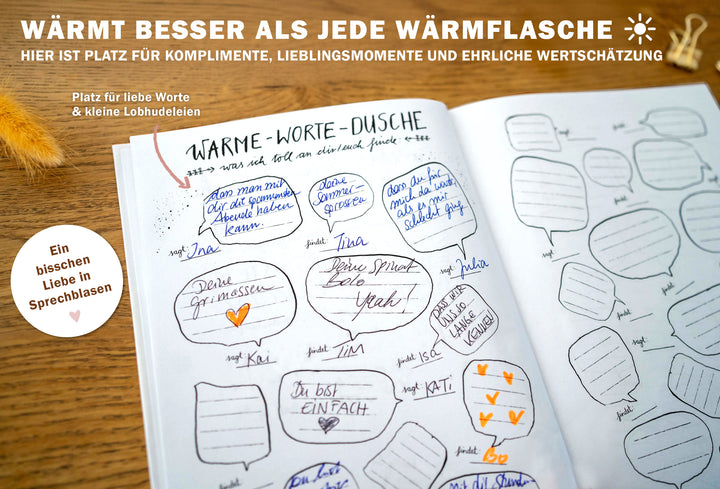 WÄRMT BESSER ALS JEDE WÄRMFLASCHE
HIER IST PLATZ FÜR KOMPLIMENTE, LIEBLINGSMOMENTE UND EHRLICHE WERTSCHÄTZUNG
Platz für liebe Worte
& kleine Lobhudeleien
WARME-WORTE-DUSCHE
was ich toll an dir/euch finde
dass man mit
dir die spannendsten
Abende haben
kann.
sagt: Ina
deine
Sommer-
sprossen
findet: Tina
dass du für
mich da warst,
als es mir
schlecht ging
sagt: Julia
Ein
bisschen
Liebe in
Sprechblasen
Deine
Grimassen
sagt: Kai
Deine Spinat
Bolo
Yeah!
findet: TIM
DAS WIR
UNS SO
LANGE
KENNEN
findet: Isa
Du bist
EINFACH
sagt: KATi
findet: Bo
findet:
Mit dir